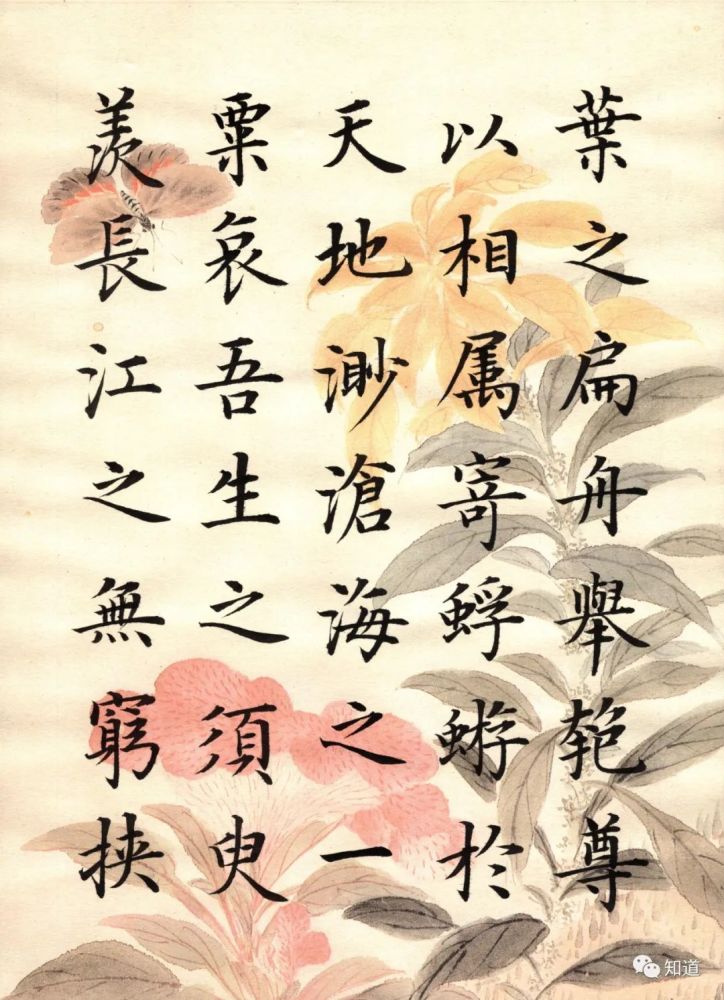 葉之扁舟舉匏尊
以相属寄蜉蝣於
天地渺滄海之一
粟哀吾生之須臾
羨長江之無窮挾
知道